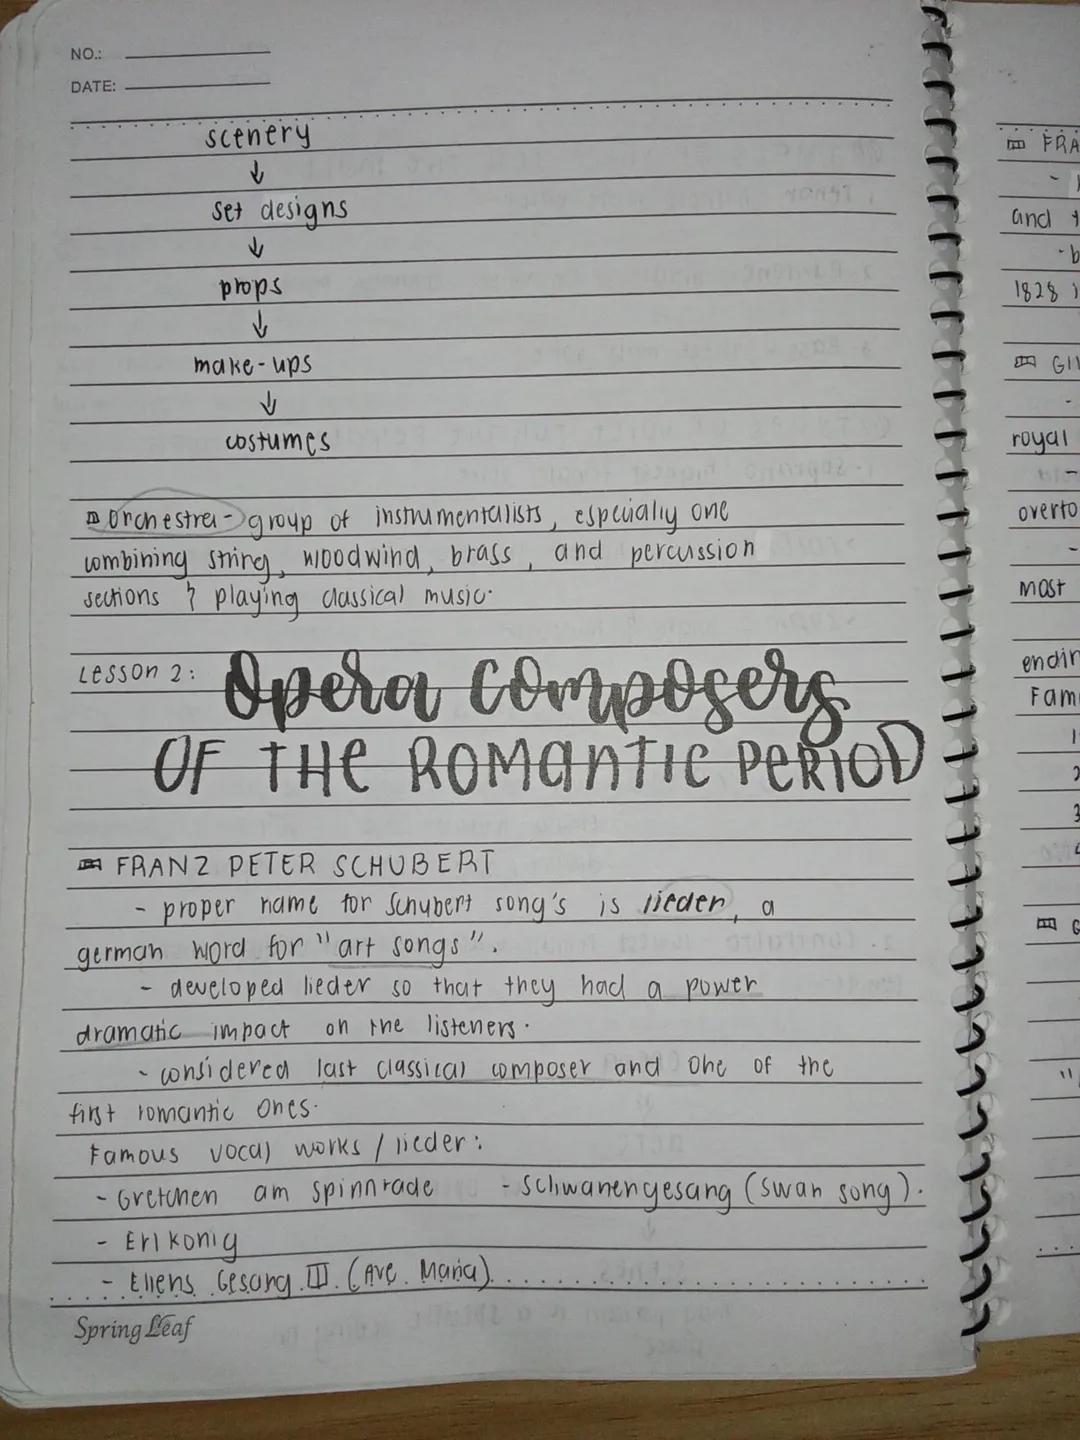 NO.:
DATE:
scenery
↓
set designs
↓
props
↓
make-ups
↓
costumes
Orchestra - group of instrumentalists, especially one
combining string, woodwind, brass, and percussion
sections & playing classical music.
Lesson 2: Opera composers
OF THE ROMANTIC PERIOD
FRANZ PETER SCHUBERT
- proper name for Schubert song's is lieder, a
german word for "art songs".
- developed lieder so that they had a power
dramatic impact on the listeners.
- considered last classical composer and one of the
first romantic ones.
Famous vocal works / lieder:
- Gretchen am spinnrade - Schwanengesang (swan song).
- Erlkonig
- Ellens Gesang III (Ave Maria)
Spring Leaf
FRA
and
1828
GI
royal
overto
most
endin
Fam
1
2
3
G